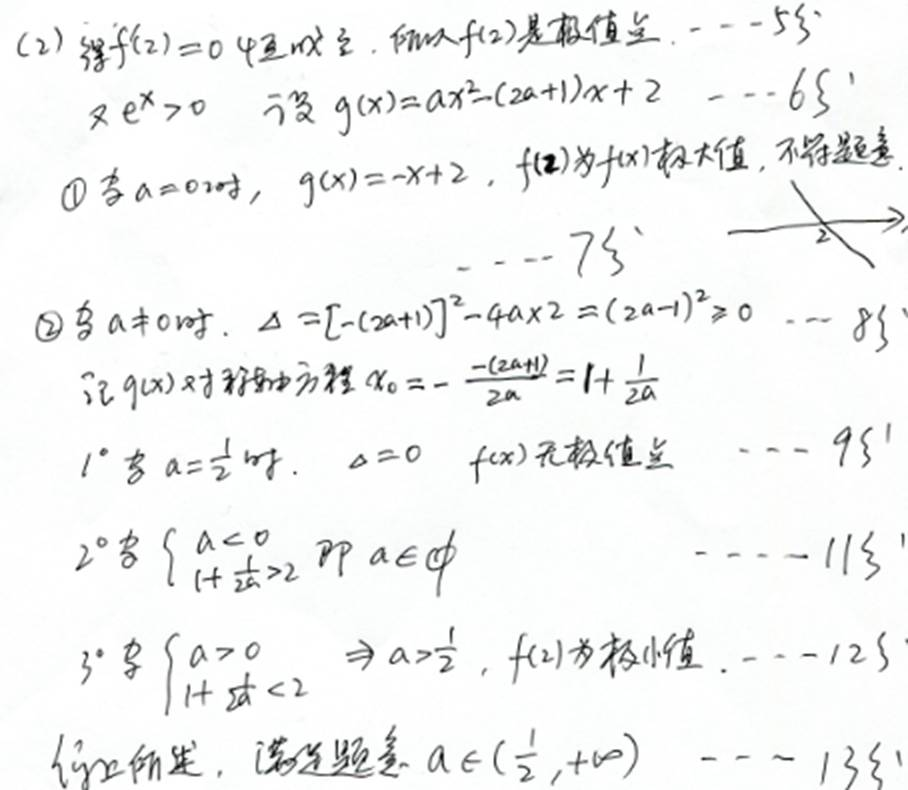 (2) 得f'(2)=0 恒成立. 所以f(2)是极值点. ----5分
又 eˣ>0 设 g(x)=ax²-(2a+1)x+2 ---6分
① 当a=0时, g(x)=-x+2, f(2)为f(x)极大值, 不符题意.
2
----7分
② 当a≠0时. Δ=[-(2a+1)]²-4a×2=(2a-1)²≥0 --- 8分
记g(x)对称轴方程 x₀=-\frac{-(2a+1)}{2a}=1+\frac{1}{2a}
1° 当 a=\frac{1}{2}时. Δ=0 f(x)无极值点 --- 9分
2° 当 { a<0 1+\frac{1}{2a}>2 即 a∈φ ----- 11分
3° 当 { a>0 1+\frac{1}{2a}<2 ⇒ a>\frac{1}{2}, f(2)为极小值. ----12分
综上所述, 满足题意 a∈(\frac{1}{2},+∞) ---- 13分